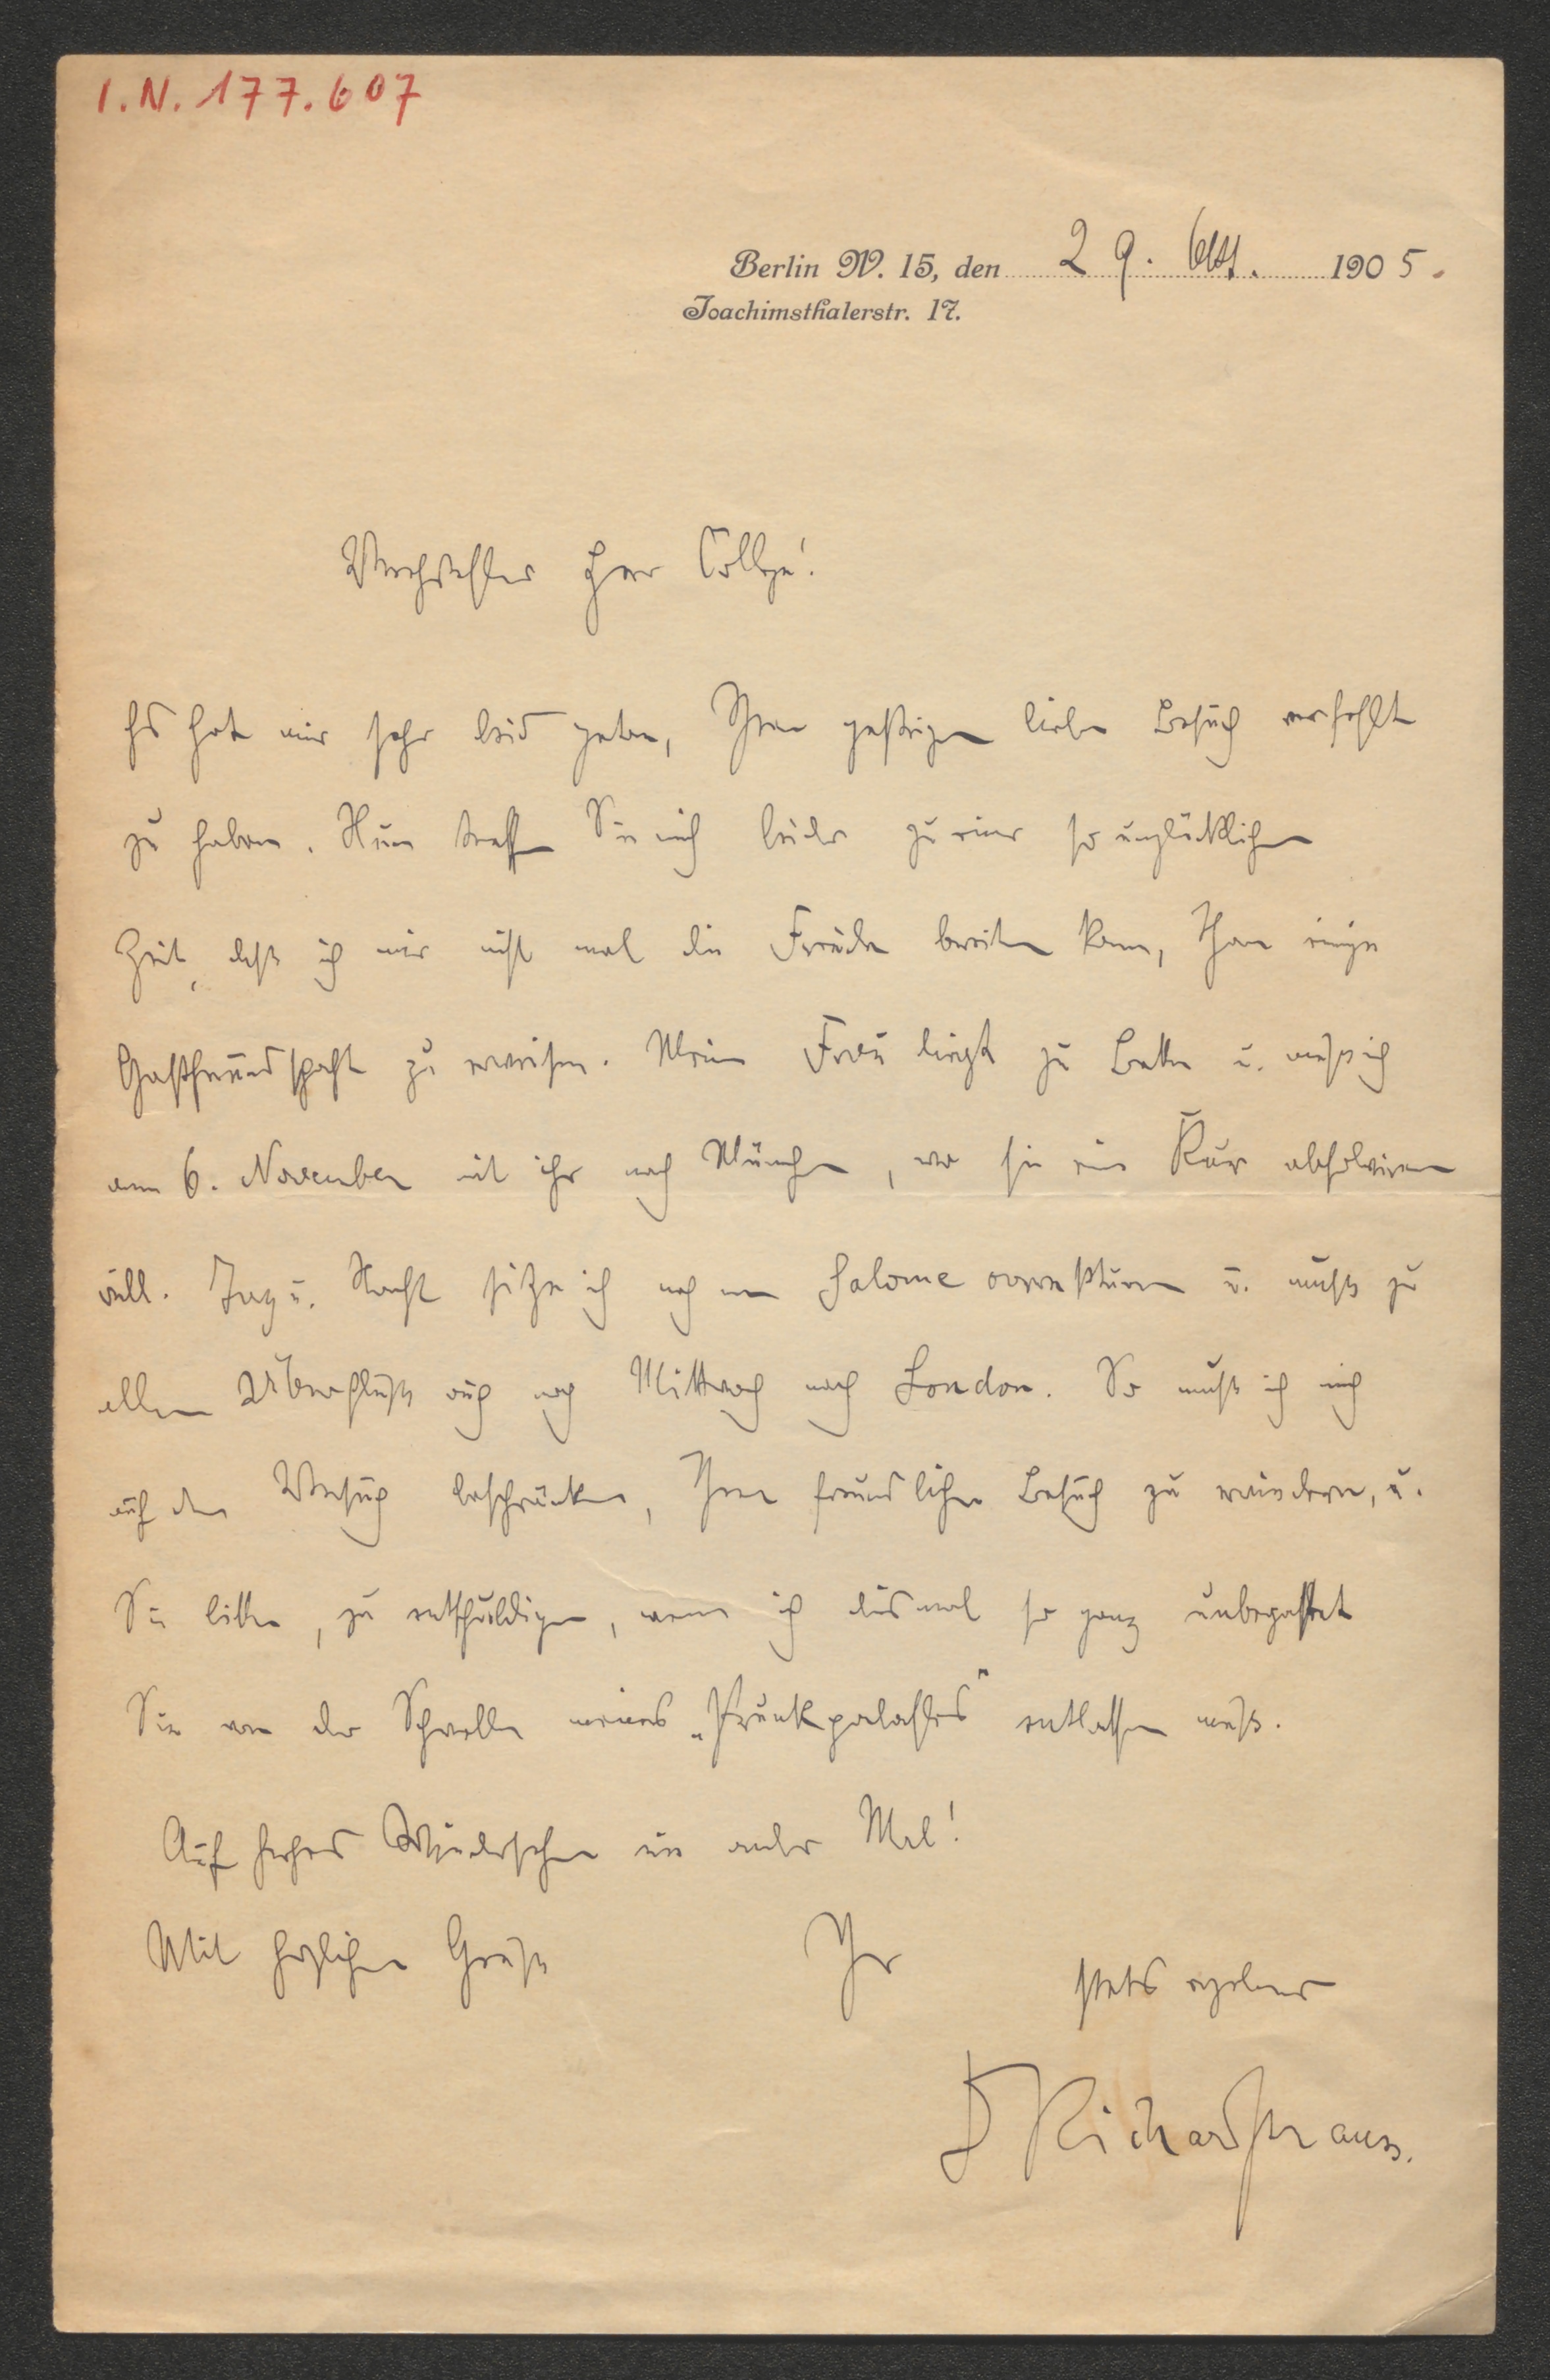 I.N. 177.607
Berlin W. 15, den 29. Okt. 1905.
Joachimsthalerstr. 17.
Verehrtester Herr College!
Es hat mir sehr leid getan, Ihren gestrigen lieben Besuch verfehlt
zu haben. Nun treffen Sie mich leider zu einer so unglücklichen
Zeit, daß ich mir nicht mal die Freude bereiten kann, Ihnen einige
Gastfreundschaft zu erweisen. Meine Frau liegt zu Bette u. muß ich
am 6. November mit ihr nach München, wo sie eine Kur absolviren
will. Tag u. Nacht sitze ich noch an Salome correkturen u. muß zu
allem Überfluß auch noch Mittwoch nach London. So muß ich mich
auf den Versuch beschränken, Ihren freundlichen Besuch zu erwiedern, u.
Sie bitten, zu entschuldigen, wenn ich diesmal so ganz unbegastet
Sie von der Schwelle meines „Prunkpalastes" entlassen muß.
Auf frohes Wiedersehen ein ander Mal!
Mit herzlichen Grüßen Ihr stets ergebener
D Richard Strauss.